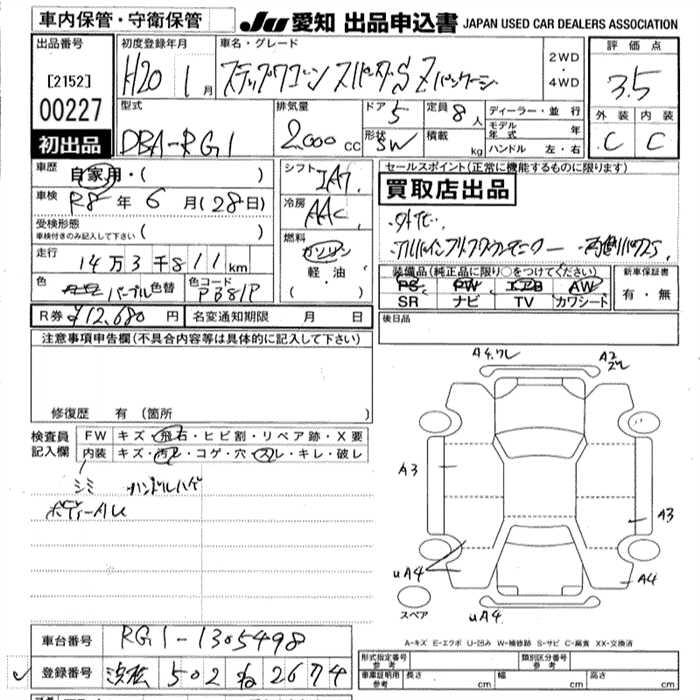 車内保管・守衛保管 JU 愛知 出品申込書 JAPAN USED CAR DEALERS ASSOCIATION
出品番号 初度登録年月 車名・グレード 2WD ・ 4WD 評価点
[2152] H20 1月 ステップワゴン スパーダS Zパッケージ 3.5
00227 型式 排気量 ドア 5 定員 8人 ディーラー・並行 外装 内装
初出品 DBA-RG1 2000cc 形状 SW 積載 kg モデル年式 年 C C
ハンドル 左・右
車歴 自家用・( ) シフト IAT セールスポイント(正常に機能するものに限ります)
車検 R8年 6月(28日) 冷房 AAC 買取店出品
受検形態 車検付きのみ記入して下さい ( )
走行 14万3千811km 燃料 ガソリン 軽油 ・( )
色 パープル 色替 色コード PB81P 装備品(純正品に限り○をつけてください) 新車保証書
PS PW AW 有・無
SR ナビ TV カワシート
R券 ¥12,680円 名変通知期限 月 日 後日品
注意事項申告欄(不具合内容等は具体的に記入して下さい)
修復歴 有(箇所
検査員記入欄 FW キズ・飛石・ヒビ割・リペア跡・X要
内装 キズ・汚レ・コゲ・穴・スレ・キレ・破レ
シミ ハンドルハゲ
ボディーAU
A4.ワレ A2
A3
A3
uA4 A4
スペア uA4
A-キズ E-エクボ U-凹み W-補修跡 S-サビ C-腐食 XX-交換済
車台番号 RG1-1305498
登録番号 浜松 502 ね 2674
形式指定番号 参考 類別区分番号 参考
車庫証明用 参考 長さ cm 幅 cm 高さ cm